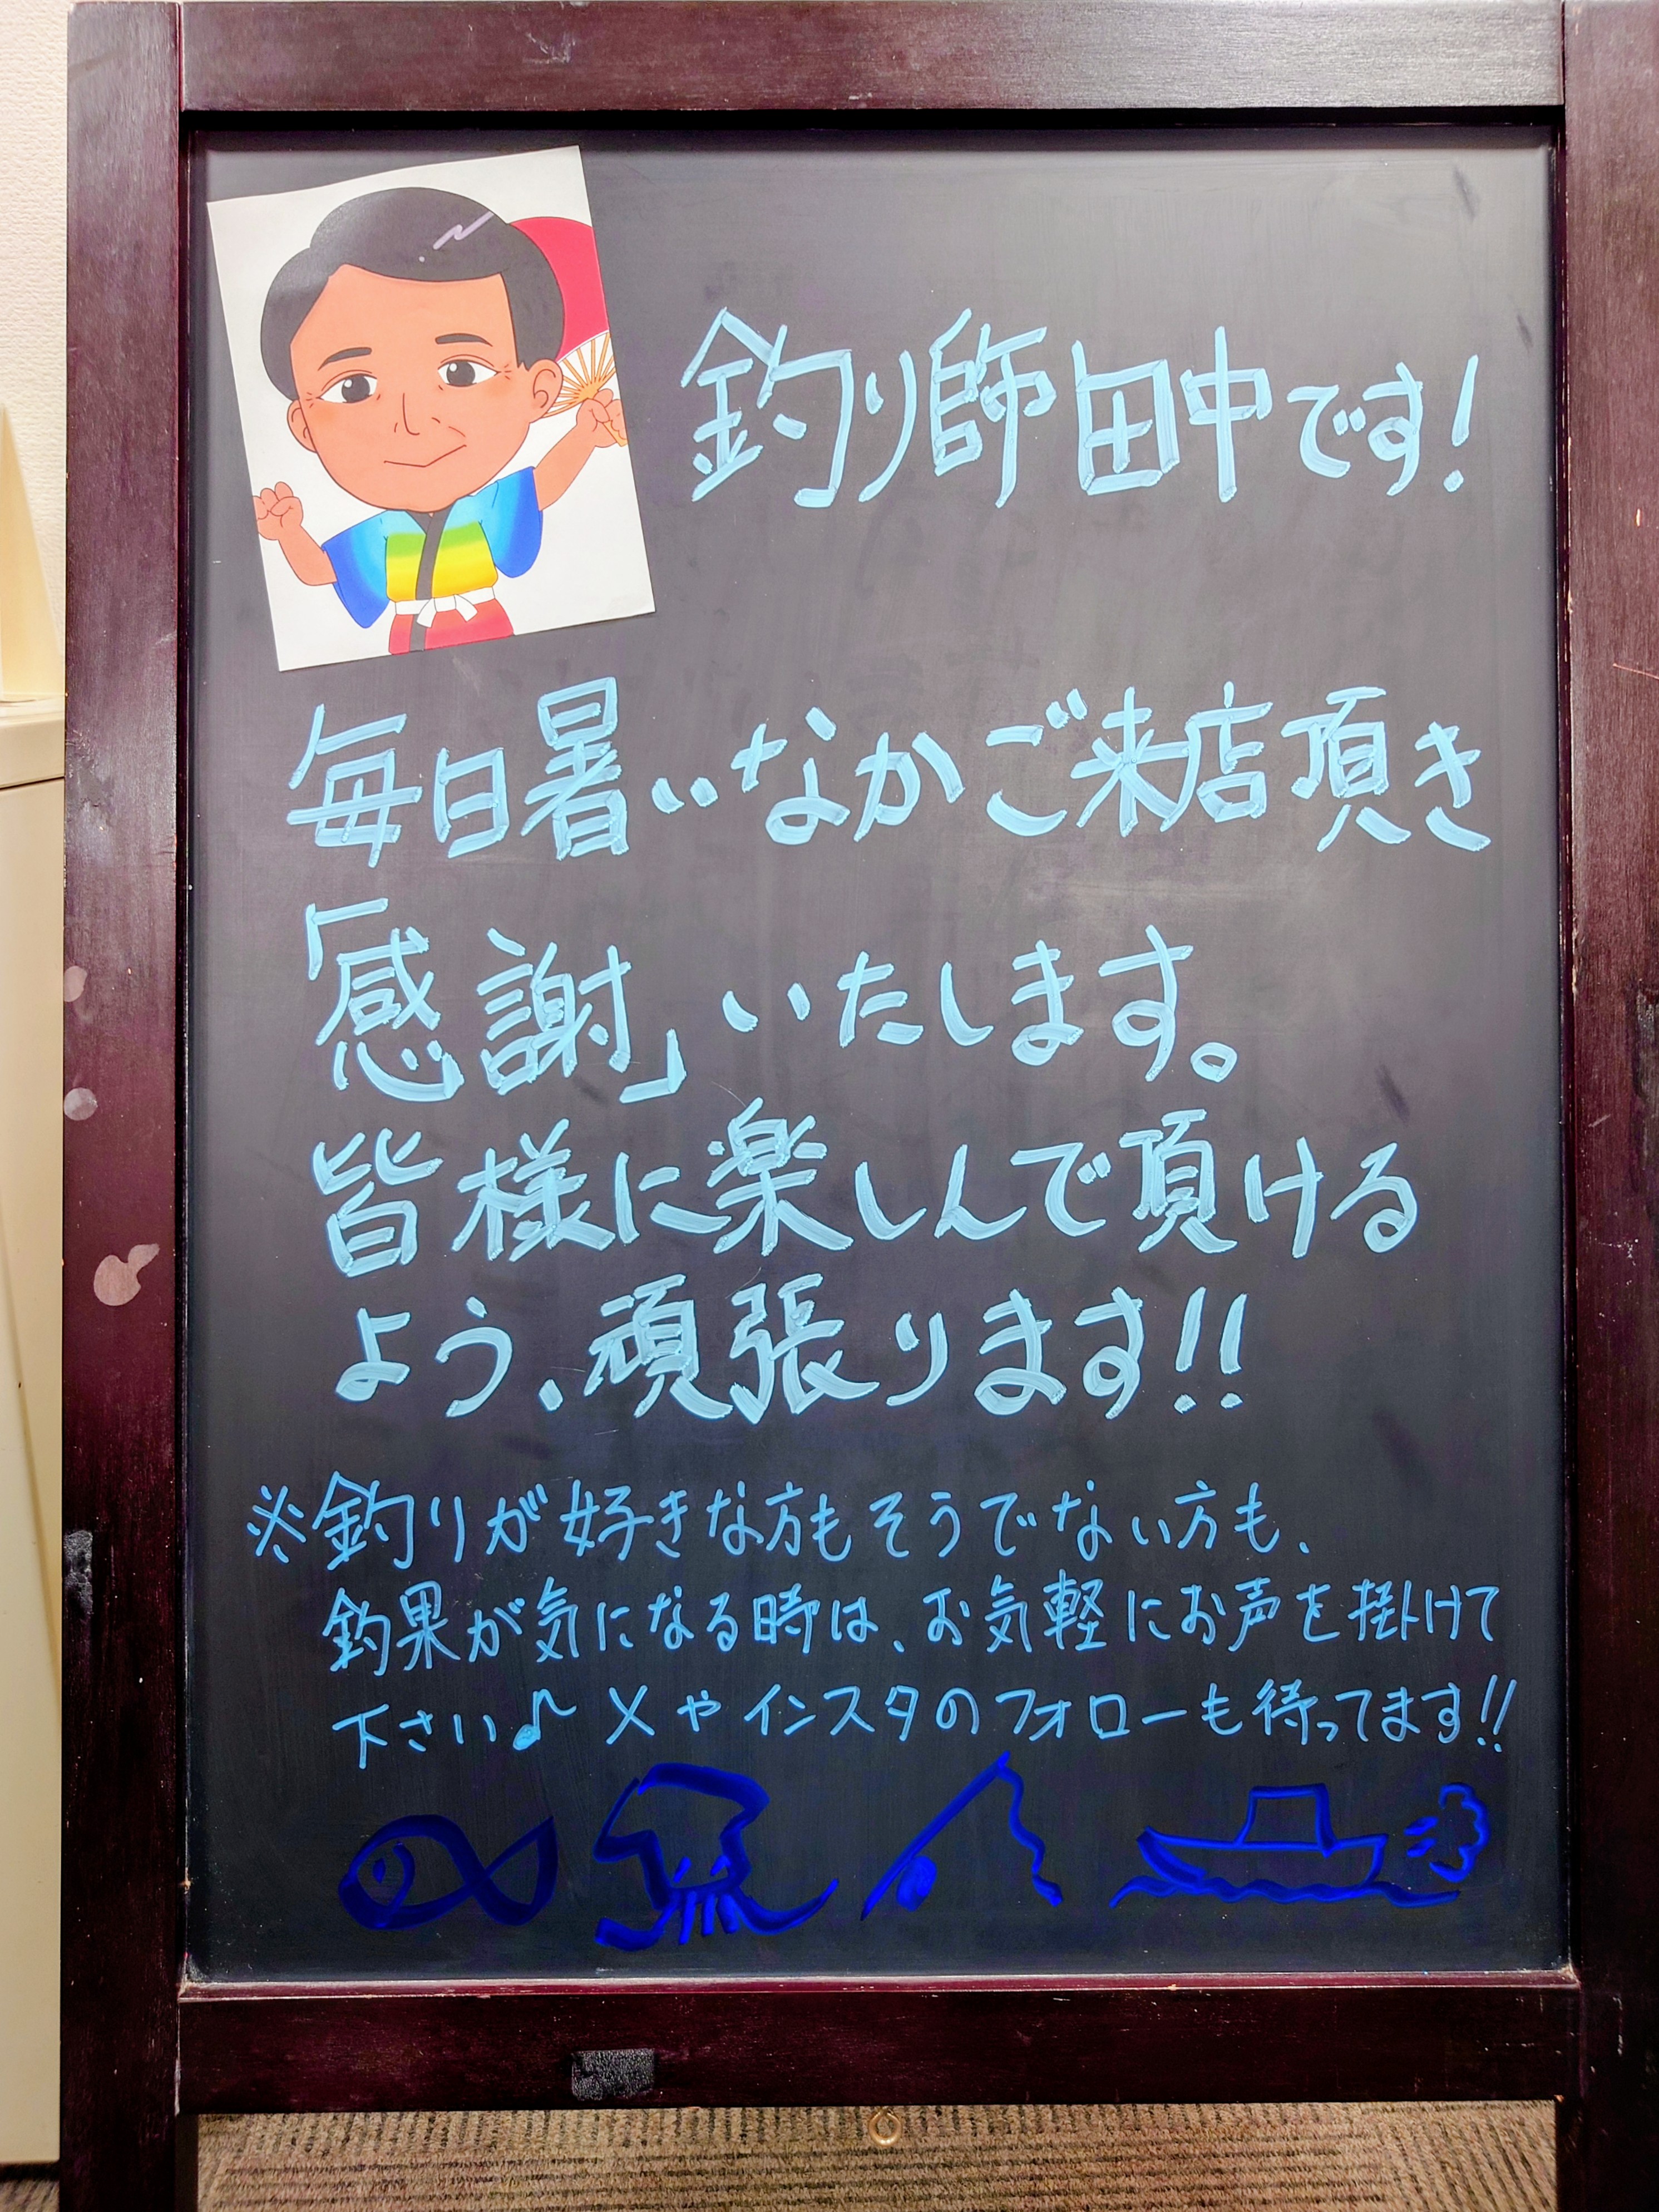 釣り師田中です!
毎日暑いなかご来店頂き
「感謝」いたします。
皆様に楽しんで頂ける
よう、頑張ります!!
※釣りが好きな方もそうでない方も、
釣果が気になる時は、お気軽にお声を掛けて
下さい♪ Xやインスタのフォローも待ってます!!